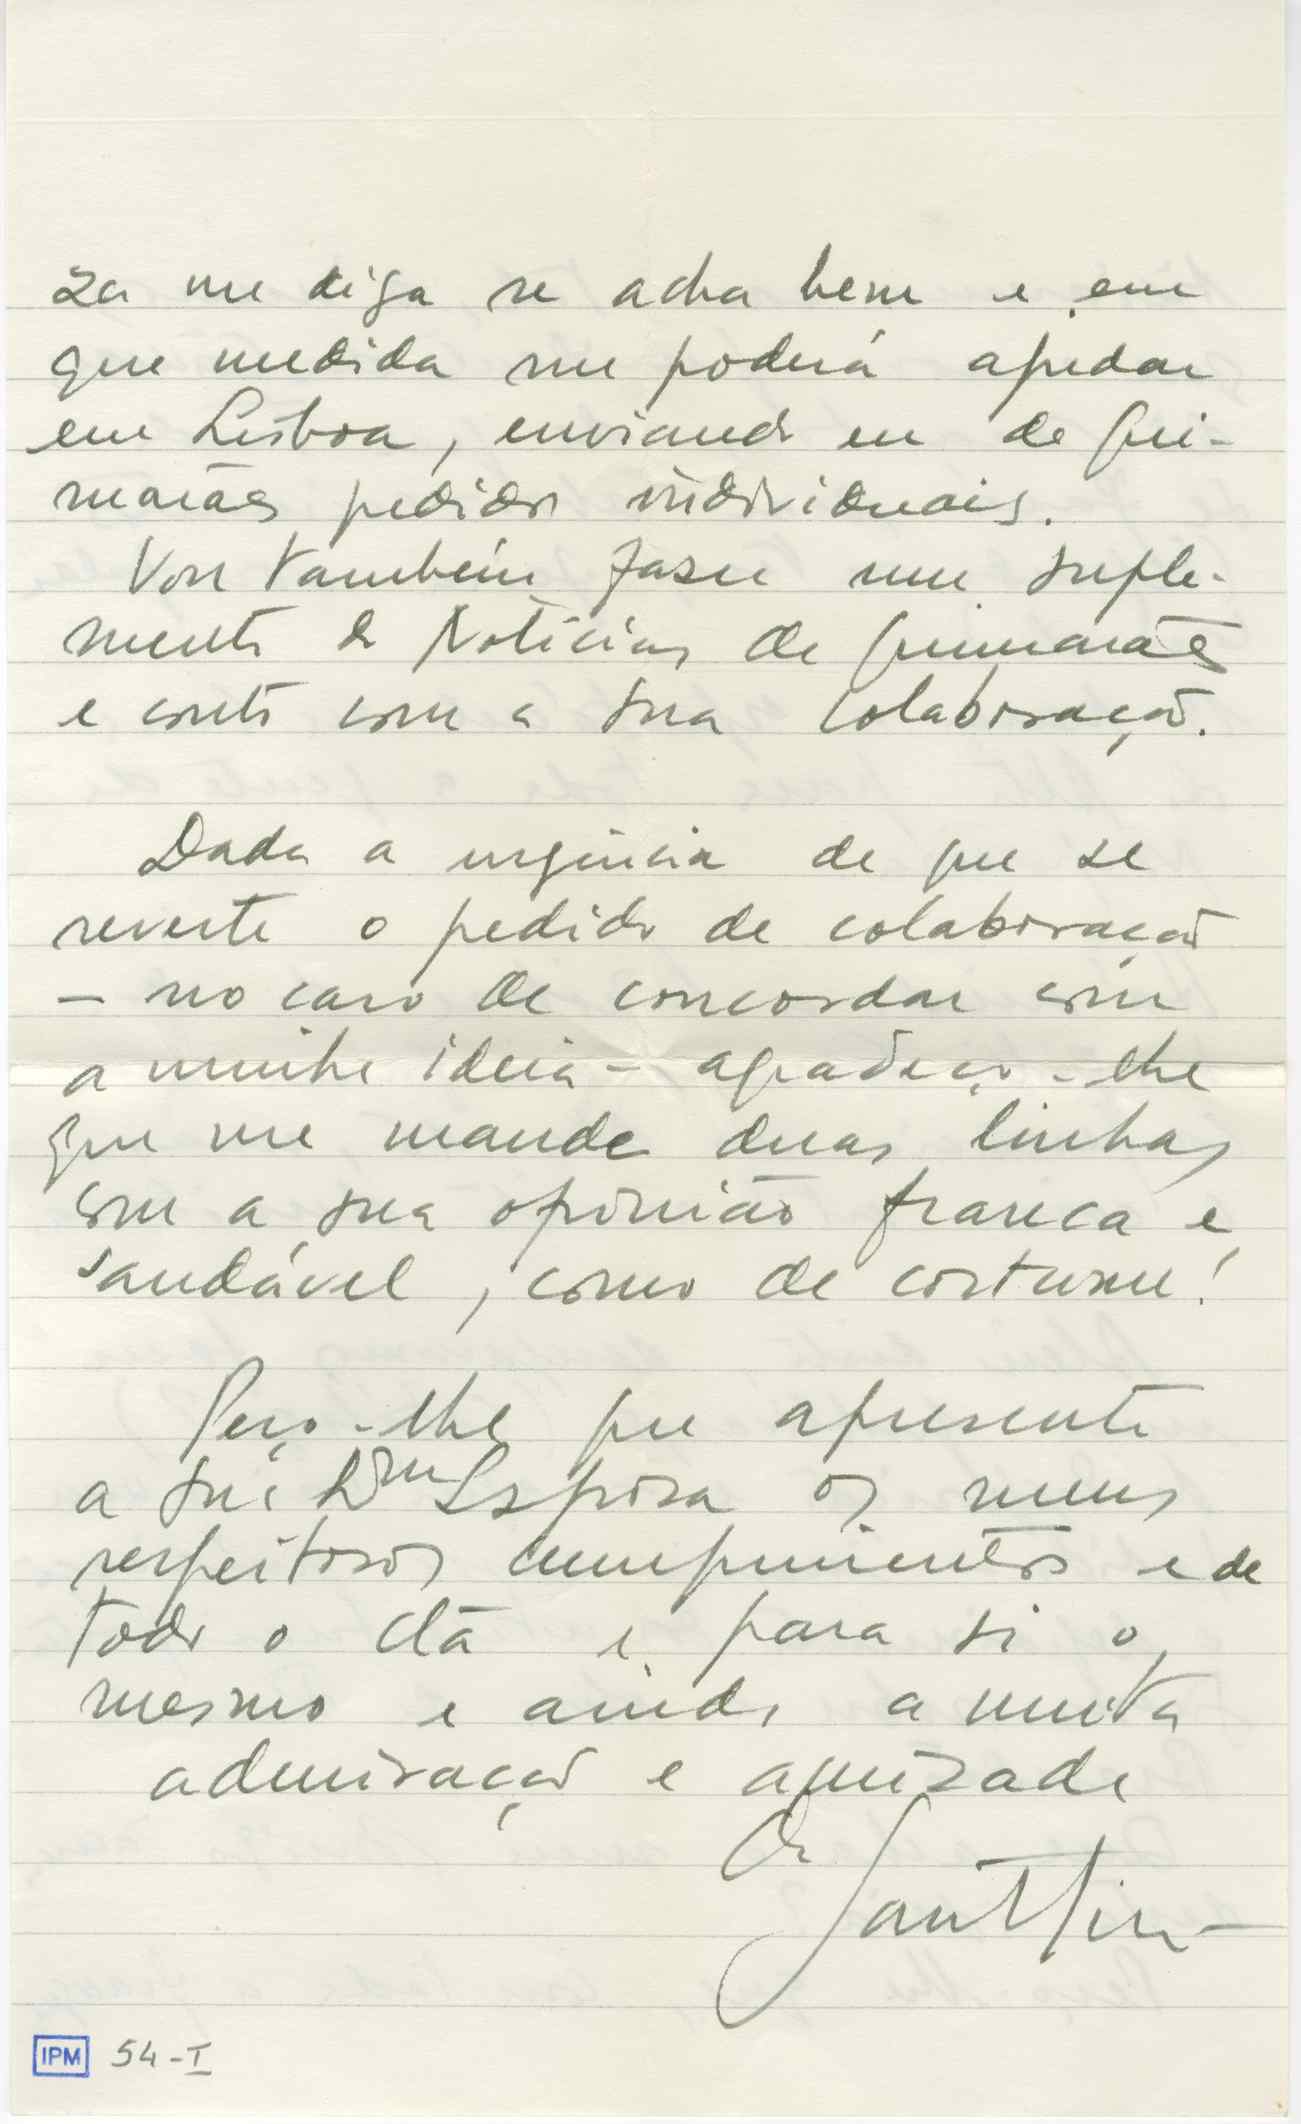 za me diga se acha bem e em
que medida me poderá ajudar
em Lisboa, enviando eu de Gui-
marães pedidos individuais.
Vou também fazer um suple-
mento do Notícias de Guimarães
e conto com a sua colaboração.
Dada a urgência de que se
reveste o pedido de colaboração
– no caso de concordar com
a minha ideia – agradeço-lhe
que me mande duas linhas
com a sua opinião franca e
saudável, como de costume!
Peço-lhe que apresente
a sua Esposa os meus
respeitosos cumprimentos e de
todo o clã e para si o
mesmo e ainda a muita
admiração e amizade
do
IPM 54-I